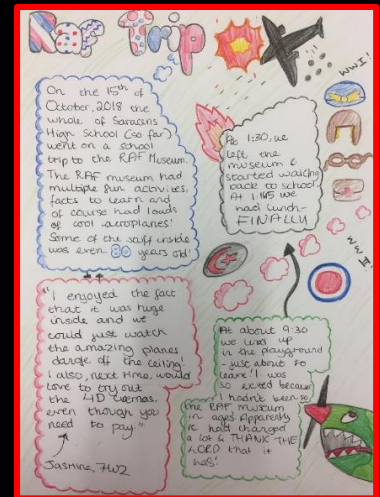 RAF Trip
On the 15th of
October, 2018 the
whole of Saracens
High School (so far)
went on a school
trip to the RAF Museum.
The RAF museum had
multiple fun activities,
facts to learn and
of course had loads
of cool aeroplanes!
Some of the stuff inside
was even 80 years old!
At 1:30, we
left the
museum &
started walking
back to school.
At 1:45 we
had lunch-
FINALLY
WWI!
WWII!
"I enjoyed the fact
that it was huge
inside and we
could just watch
the amazing planes
dangle off the ceiling!
I also, next time, would
love to try out
the 4D cinemas,
even though you
need to pay."
Jasmine, 7W2
At about 9:30
we lined up
in the playground
- just about to
leave! I was
so excited because
I hadn't been to
the RAF museum
in ages. Apparently
it had changed
a lot & THANK THE
LORD that it
has!